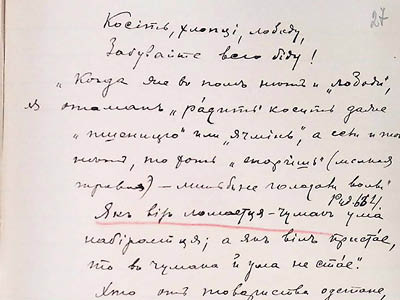 27
Косіть, хлопці, лободу,
Забувайте всю біду!
„Когда же в полѣ нѣтъ и „лободи",
отаманъ „радить" косить далѣе
„пшеницю" или „ячмінь", а если и того
нѣтъ, то хоть „споришъ" (мелкая
травка) – голодни воли
Якъ віръ ломается – чумакъ ума
набірается; а якъ вілъ пристае,
то въ чумака й ума не стае".
Хто отъ товариства одстане,